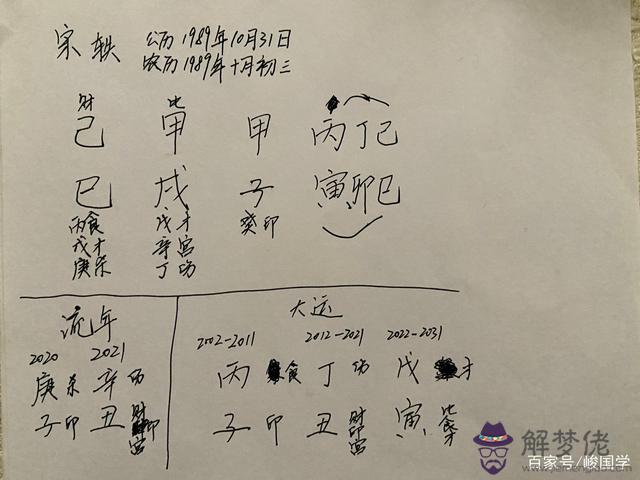 宋轶 公历1989年10月31日
农历1989年十月初三
财 比
己 甲 甲 丙丁己
巳 戌 子 寅卯巳
丙食 戊才 癸印
戊才 辛官
庚杀 丁伤
流年
2020 2021
庚杀 辛伤
子印 丑财印官
大运
2002-2011 2012-2021 2022-2031
丙食 丁伤 戊才
子印 丑财印官 寅比食才
解梦佬
百家号/峻国学